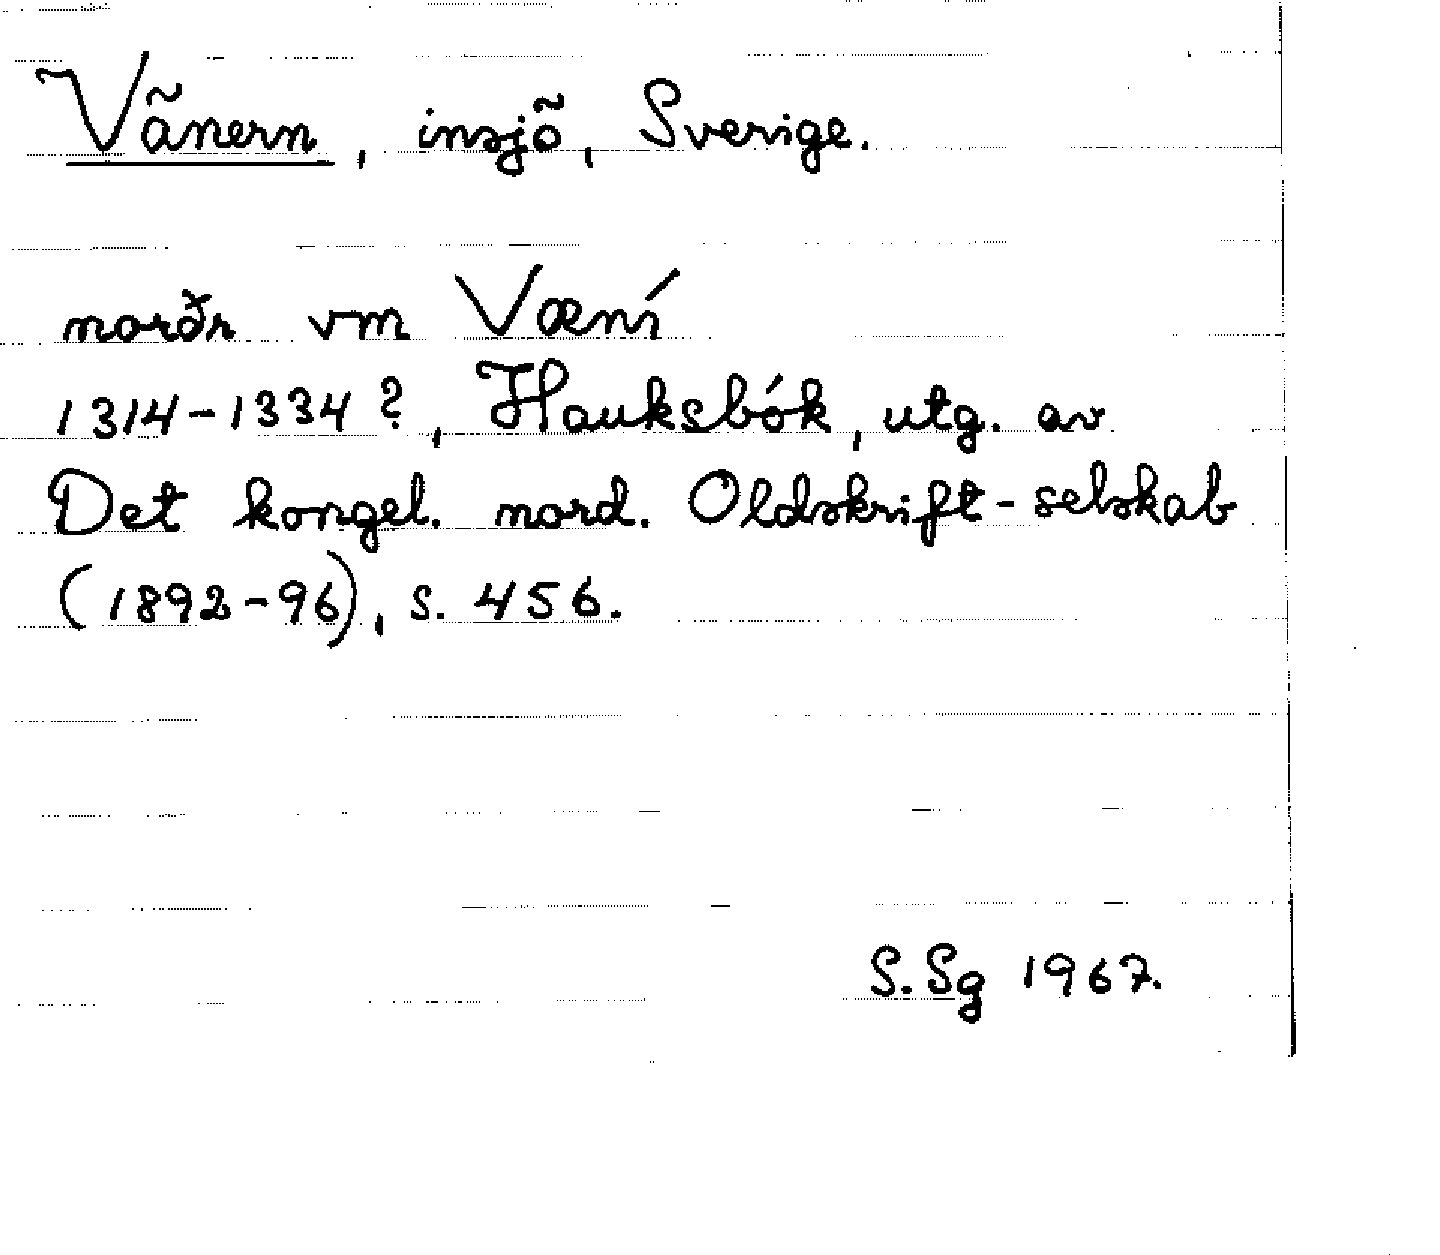 Vänern, insjö, Sverige.
norðr vm Væní
1314-1334?, Hauksbók, utg. av
Det kongel. nord. Oldskrift-selskab
(1892-96), s. 456.
S.Sg 1967.